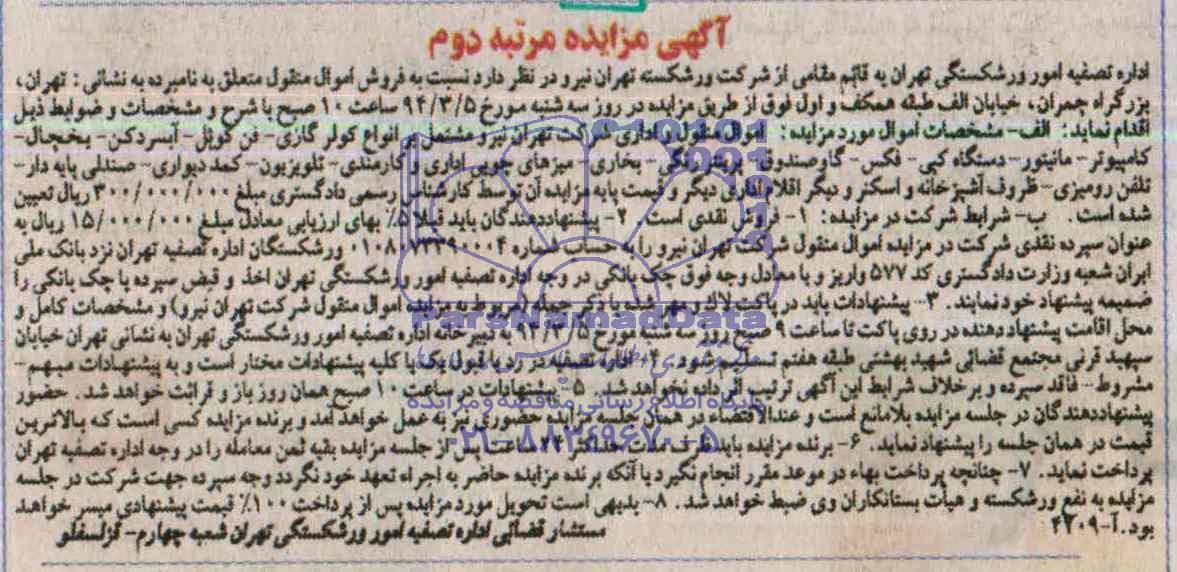 آگهی مزایده مرتبه دوم
اداره تصفیه امور ورشکستگی تهران به قائم مقامی از شرکت ورشکسته تهران نیرو در نظر دارد نسبت به فروش اموال منقول متعلق به نامبرده به نشانی: تهران،
بزرگراه چمران، خیابان الف طبقه همکف و اول فوق از طریق مزایده در روز سه شنبه مورخ ۹۴/۳/۵ ساعت ۱۰ صبح با شرح و مشخصات و ضوابط ذیل
اقدام نماید: الف- مشخصات اموال مورد مزایده: اموال منقول و اداری شرکت تهران نیرو مشتمل بر انواع کولر گازی- فن کوئل- آبسردکن- یخچال-
کامپیوتر- مانیتور- دستگاه کپی- فکس- گاوصندوق- پرینتر رنگی- بخاری- میزهای چوبی اداری و کارمندی- تلویزیون- کمد دیواری- صندلی پایه دار-
تلفن رومیزی- ظروف آشپزخانه و اسکنر و دیگر اقلام اداری دیگر و قیمت پایه مزایده آن توسط کارشناس رسمی دادگستری مبلغ ۳۰۰/۰۰۰/۰۰۰ ریال تعیین
شده است. ب- شرایط شرکت در مزایده: ۱- فروش نقدی است. ۲- پیشنهاددهندگان باید قبلا ۵٪ بهای ارزیابی معادل مبلغ ۱۵/۰۰۰/۰۰۰ ریال به
عنوان سپرده نقدی شرکت در مزایده اموال منقول شرکت تهران نیرو را به حساب شماره ورشکستگان اداره تصفیه تهران نزد بانک ملی
ایران شعبه وزارت دادگستری کد ۵۷۷ واریز و یا معادل وجه فوق چک بانکی در وجه اداره تصفیه امور ورشکستگی تهران اخذ و قبض سپرده یا چک بانکی را
ضمیمه پیشنهاد خود نمایند. ۳- پیشنهادات باید در پاکت لاک و مهر شده با ذکر جمله (مربوط به مزایده اموال منقول شرکت تهران نیرو) و مشخصات کامل و
محل اقامت پیشنهاددهنده در روی پاکت تا ساعت ۹ صبح روز سه شنبه مورخ ۹۴/۳/۵ به دبیرخانه اداره تصفیه امور ورشکستگی تهران به نشانی تهران خیابان
سپهبد قرنی مجتمع قضائی شهید بهشتی طبقه هفتم تسلیم شود. ۴- اداره تصفیه در رد یا قبول یک یا کلیه پیشنهادات مختار است و به پیشنهادات مبهم-
مشروط- فاقد سپرده و برخلاف شرایط این آگهی ترتیب اثر داده نخواهد شد. ۵- پیشنهادات در ساعت ۱۰ صبح همان روز باز و قرائت خواهد شد. حضور
پیشنهاددهندگان در جلسه مزایده بلامانع است و عندالاقتضاء در همان جلسه مزایده حضوری نیز به عمل خواهد آمد و برنده مزایده کسی است که بالاترین
قیمت در همان جلسه را پیشنهاد نماید. ۶- برنده مزایده باید ظرف مدت حداکثر ۲۴ ساعت پس از جلسه مزایده بقیه ثمن معامله را در وجه اداره تصفیه تهران
پرداخت نماید. ۷- چنانچه پرداخت بهاء در موعد مقرر انجام نگیرد یا آنکه برنده مزایده حاضر به اجراء تعهد خود نگردد وجه سپرده جهت شرکت در جلسه
مزایده به نفع ورشکسته و هیأت بستانکاران وی ضبط خواهد شد. ۸- بدیهی است تحویل مورد مزایده پس از پرداخت ۱۰۰٪ قیمت پیشنهادی میسر خواهد
بود. آ-۴۲۰۹
مستشار قضائی اداره تصفیه امور ورشکستگی تهران شعبه چهارم- قزلسفلو
ParsNamadData
پایگاه اطلاع رسانی مناقصه و مزایده
۰۲۱-۸۸۳۴۹۶۷۰-۵